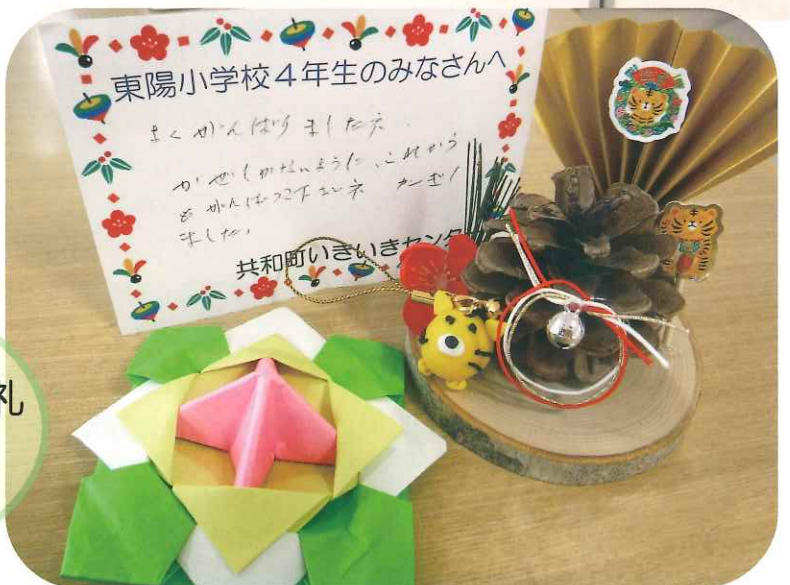 東陽小学校4年生のみなさんへ
よくがんばりましたネ.
かぜひかないように、これから
もがんばって下さいネ カンゲキし
ました。
共和町いきいきセンタ
礼